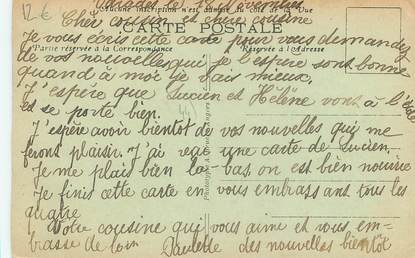 12 €
Cher cousin et chère cousine
Aucune inscription n'est admise du côté de la Vue
CARTE POSTALE
Je vous écris cette carte pour vous demandez
Partie réservée à la Correspondance
Réservée à l'Adresse
de vos nouvelles que je l'espère sont bonne
quand à moi je vais mieux.
J'espère que Lucien et Hélène vont à l'école
et se porte bien.
J'espère avoir bientôt de vos nouvelles qui me
feront plaisir. J'ai reçu une carte de Lucien.
Je me plais bien là-bas on est bien nourrie
Je finis cette carte en vous embrassant tous les
quatre
Votre cousine qui vous aime et vous em-
brasse de loin Paulette des nouvelles bientôt